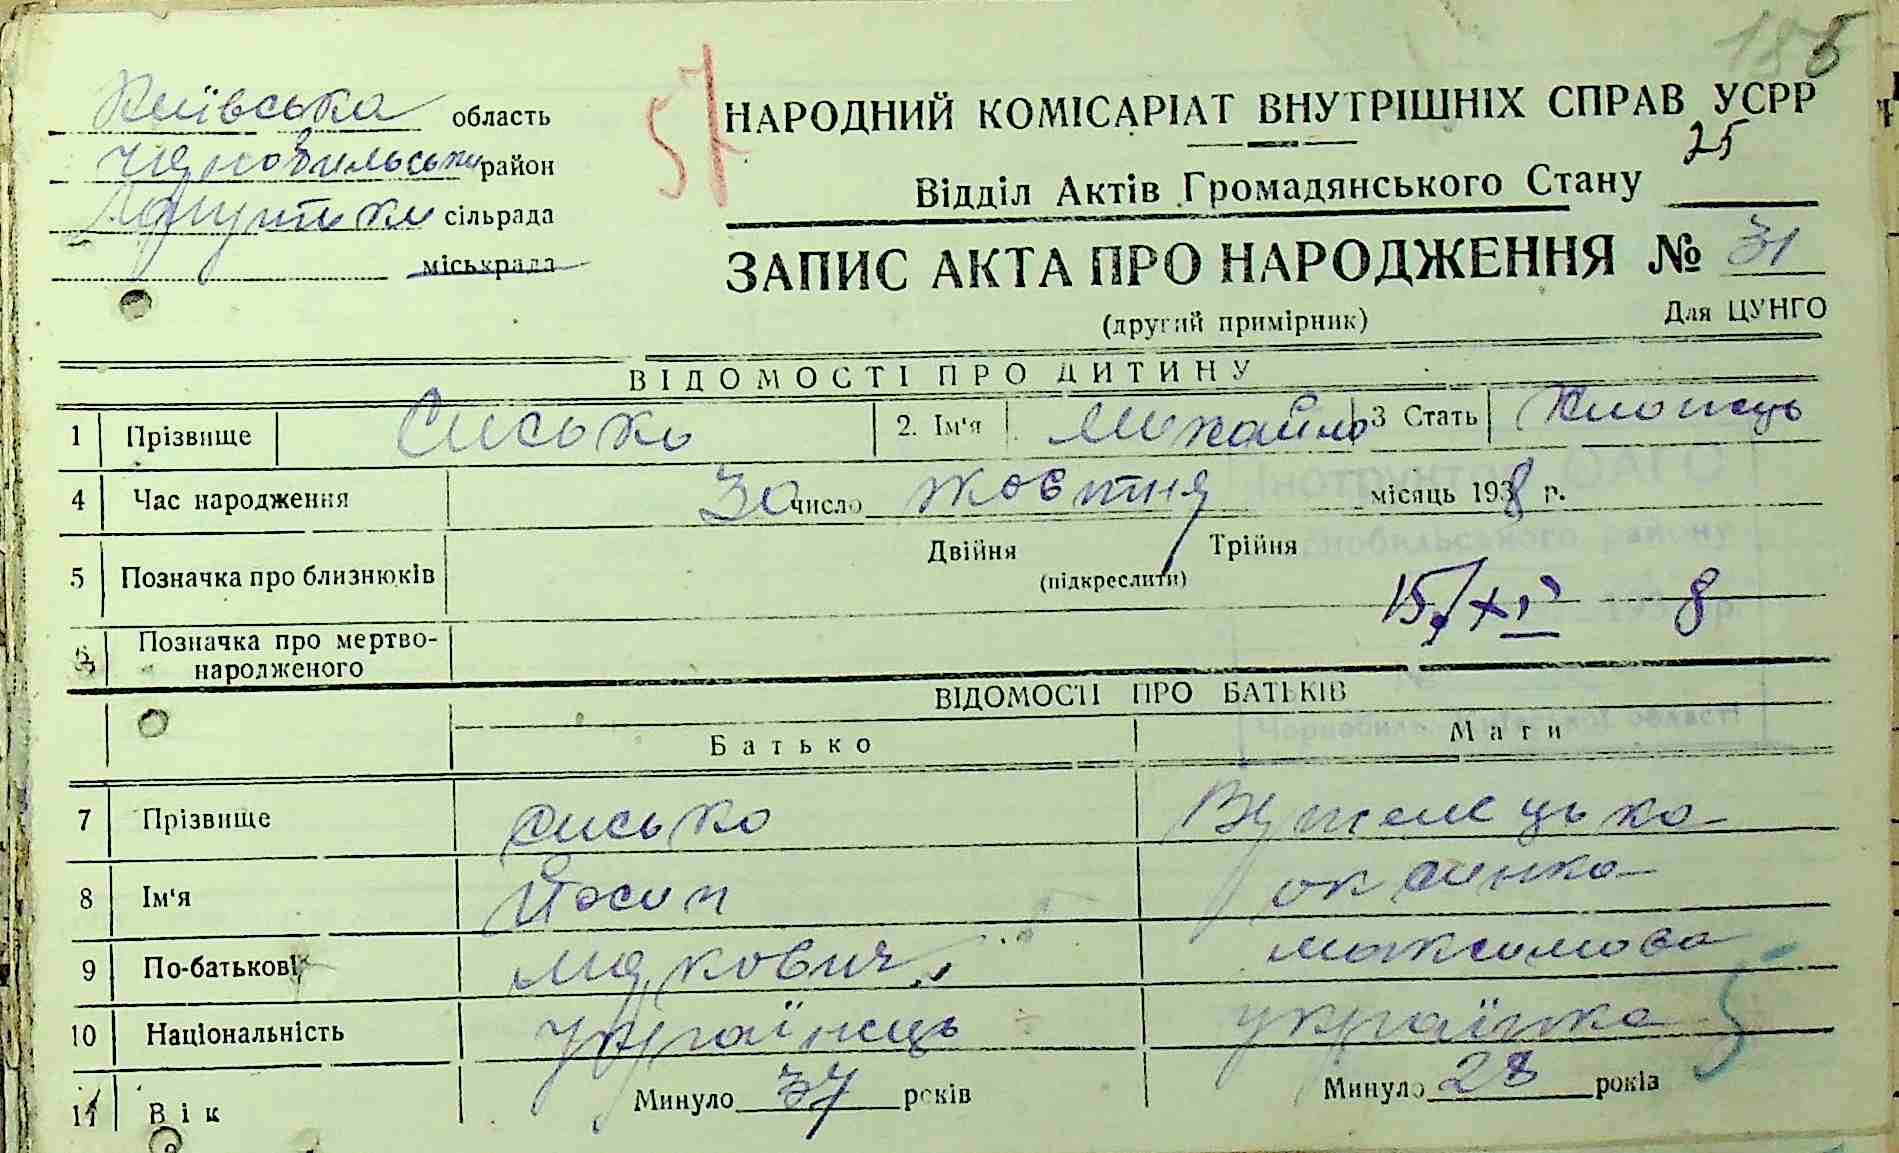 185
Київська область
57
НАРОДНИЙ КОМІСАРІАТ ВНУТРІШНІХ СПРАВ УСРР
Чорнобильський район
25
Відділ Актів Громадянського Стану
сільрада
міськрада
ЗАПИС АКТА ПРО НАРОДЖЕННЯ № 31
(другий примірник) Для ЦУНГО
ВІДОМОСТІ ПРО ДИТИНУ
1 Прізвище Сисько 2. Ім'я Михайло 3 Стать Хлопець
4 Час народження 30 число жовтня місяць 1938 р.
5 Позначка про близнюків Двійня Трійня
(підкреслити)
15/XI 8
6 Позначка про мертво-
народженого
ВІДОМОСТІ ПРО БАТЬКІВ
Батько Мати
7 Прізвище Сисько
8 Ім'я Йосип
9 По-батькові Максимова
10 Національність українець українка
11 Вік Минуло 37 років Минуло 28 років
Інструктор
Чорнобильського району
193 р.
№
Чорнобиль Київської області